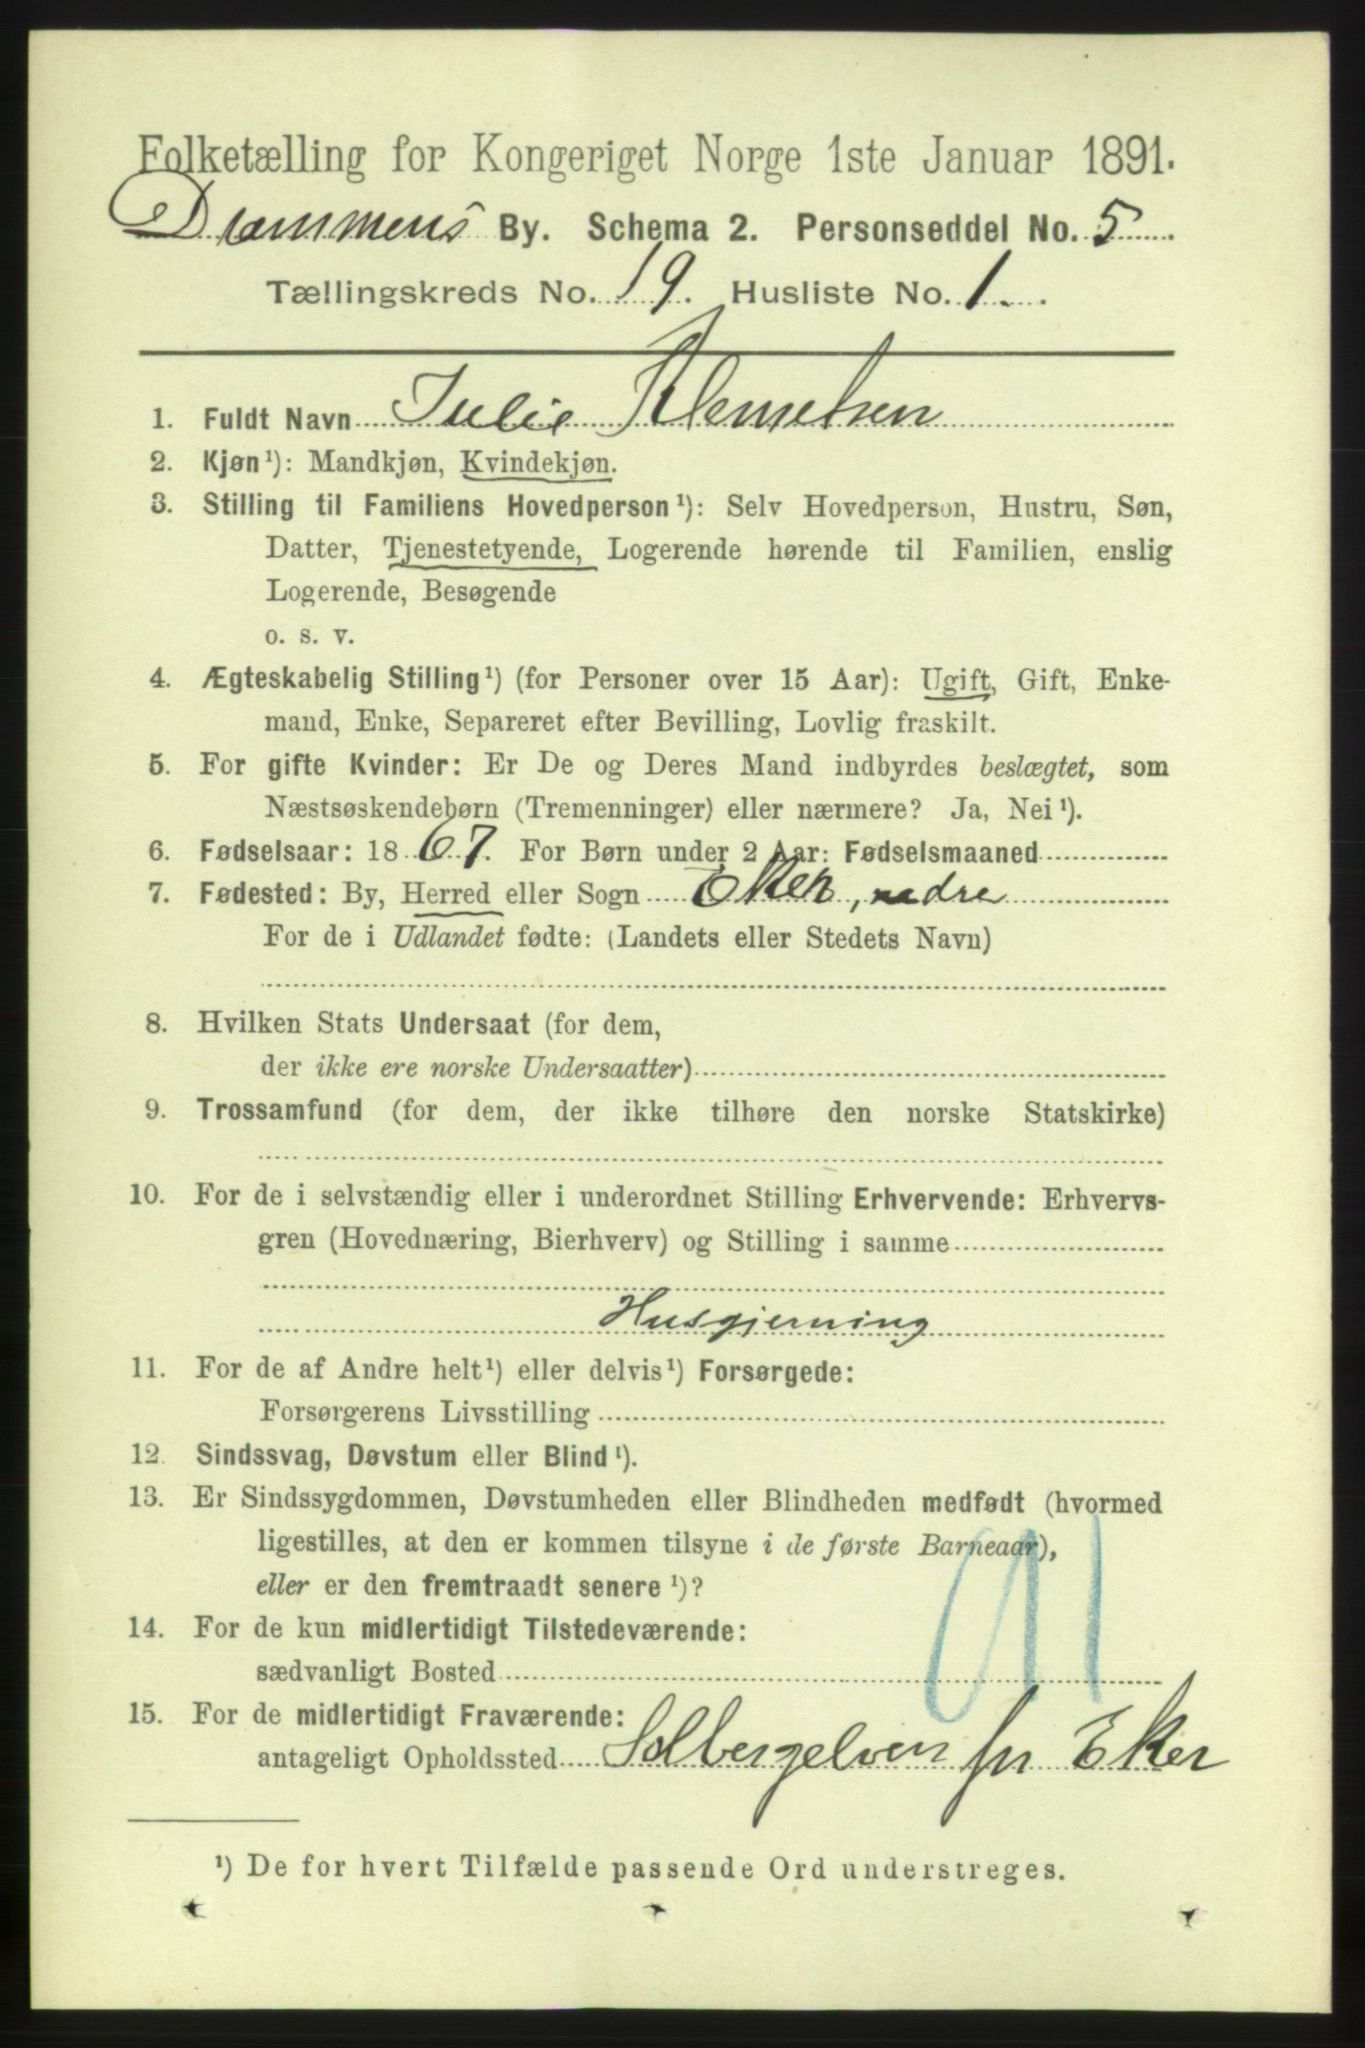 Folketælling for Kongeriget Norge 1ste Januar 1891.
Drammens By. Schema 2. Personseddel No. 5
Tællingskreds No. 19. Husliste No. 1.
1. Fuldt Navn Julie Klemetsen
2. Kjøn¹): Mandkjøn, Kvindekjøn.
3. Stilling til Familiens Hovedperson¹): Selv Hovedperson, Hustru, Søn,
Datter, Tjenestetyende, Logerende hørende til Familien, enslig
Logerende, Besøgende
o. s. v.
4. Ægteskabelig Stilling¹) (for Personer over 15 Aar): Ugift, Gift, Enke-
mand, Enke, Separeret efter Bevilling, Lovlig fraskilt.
5. For gifte Kvinder: Er De og Deres Mand indbyrdes beslægtet, som
Næstsøskendebørn (Tremenninger) eller nærmere? Ja, Nei¹).
6. Fødselsaar: 1867. For Børn under 2 Aar: Fødselsmaaned
7. Fødested: By, Herred eller Sogn Eker, nedre
For de i Udlandet fødte: (Landets eller Stedets Navn)
8. Hvilken Stats Undersaat (for dem,
der ikke ere norske Undersaatter)
9. Trossamfund (for dem, der ikke tilhøre den norske Statskirke)
10. For de i selvstændig eller i underordnet Stilling Erhvervende: Erhvervs-
gren (Hovednæring, Bierhverv) og Stilling i samme
Husgjerning
11. For de af Andre helt¹) eller delvis¹) Forsørgede:
Forsørgerens Livsstilling
12. Sindssvag, Døvstum eller Blind¹).
13. Er Sindssygdommen, Døvstumheden eller Blindheden medfødt (hvormed
ligestilles, at den er kommen tilsyne i de første Barneaar),
eller er den fremtraadt senere¹)?
14. For de kun midlertidigt Tilstedeværende:
sædvanligt Bosted
91
15. For de midlertidigt Fraværende:
antageligt Opholdssted Solbergelven pr Eker
¹) De for hvert Tilfælde passende Ord understreges.